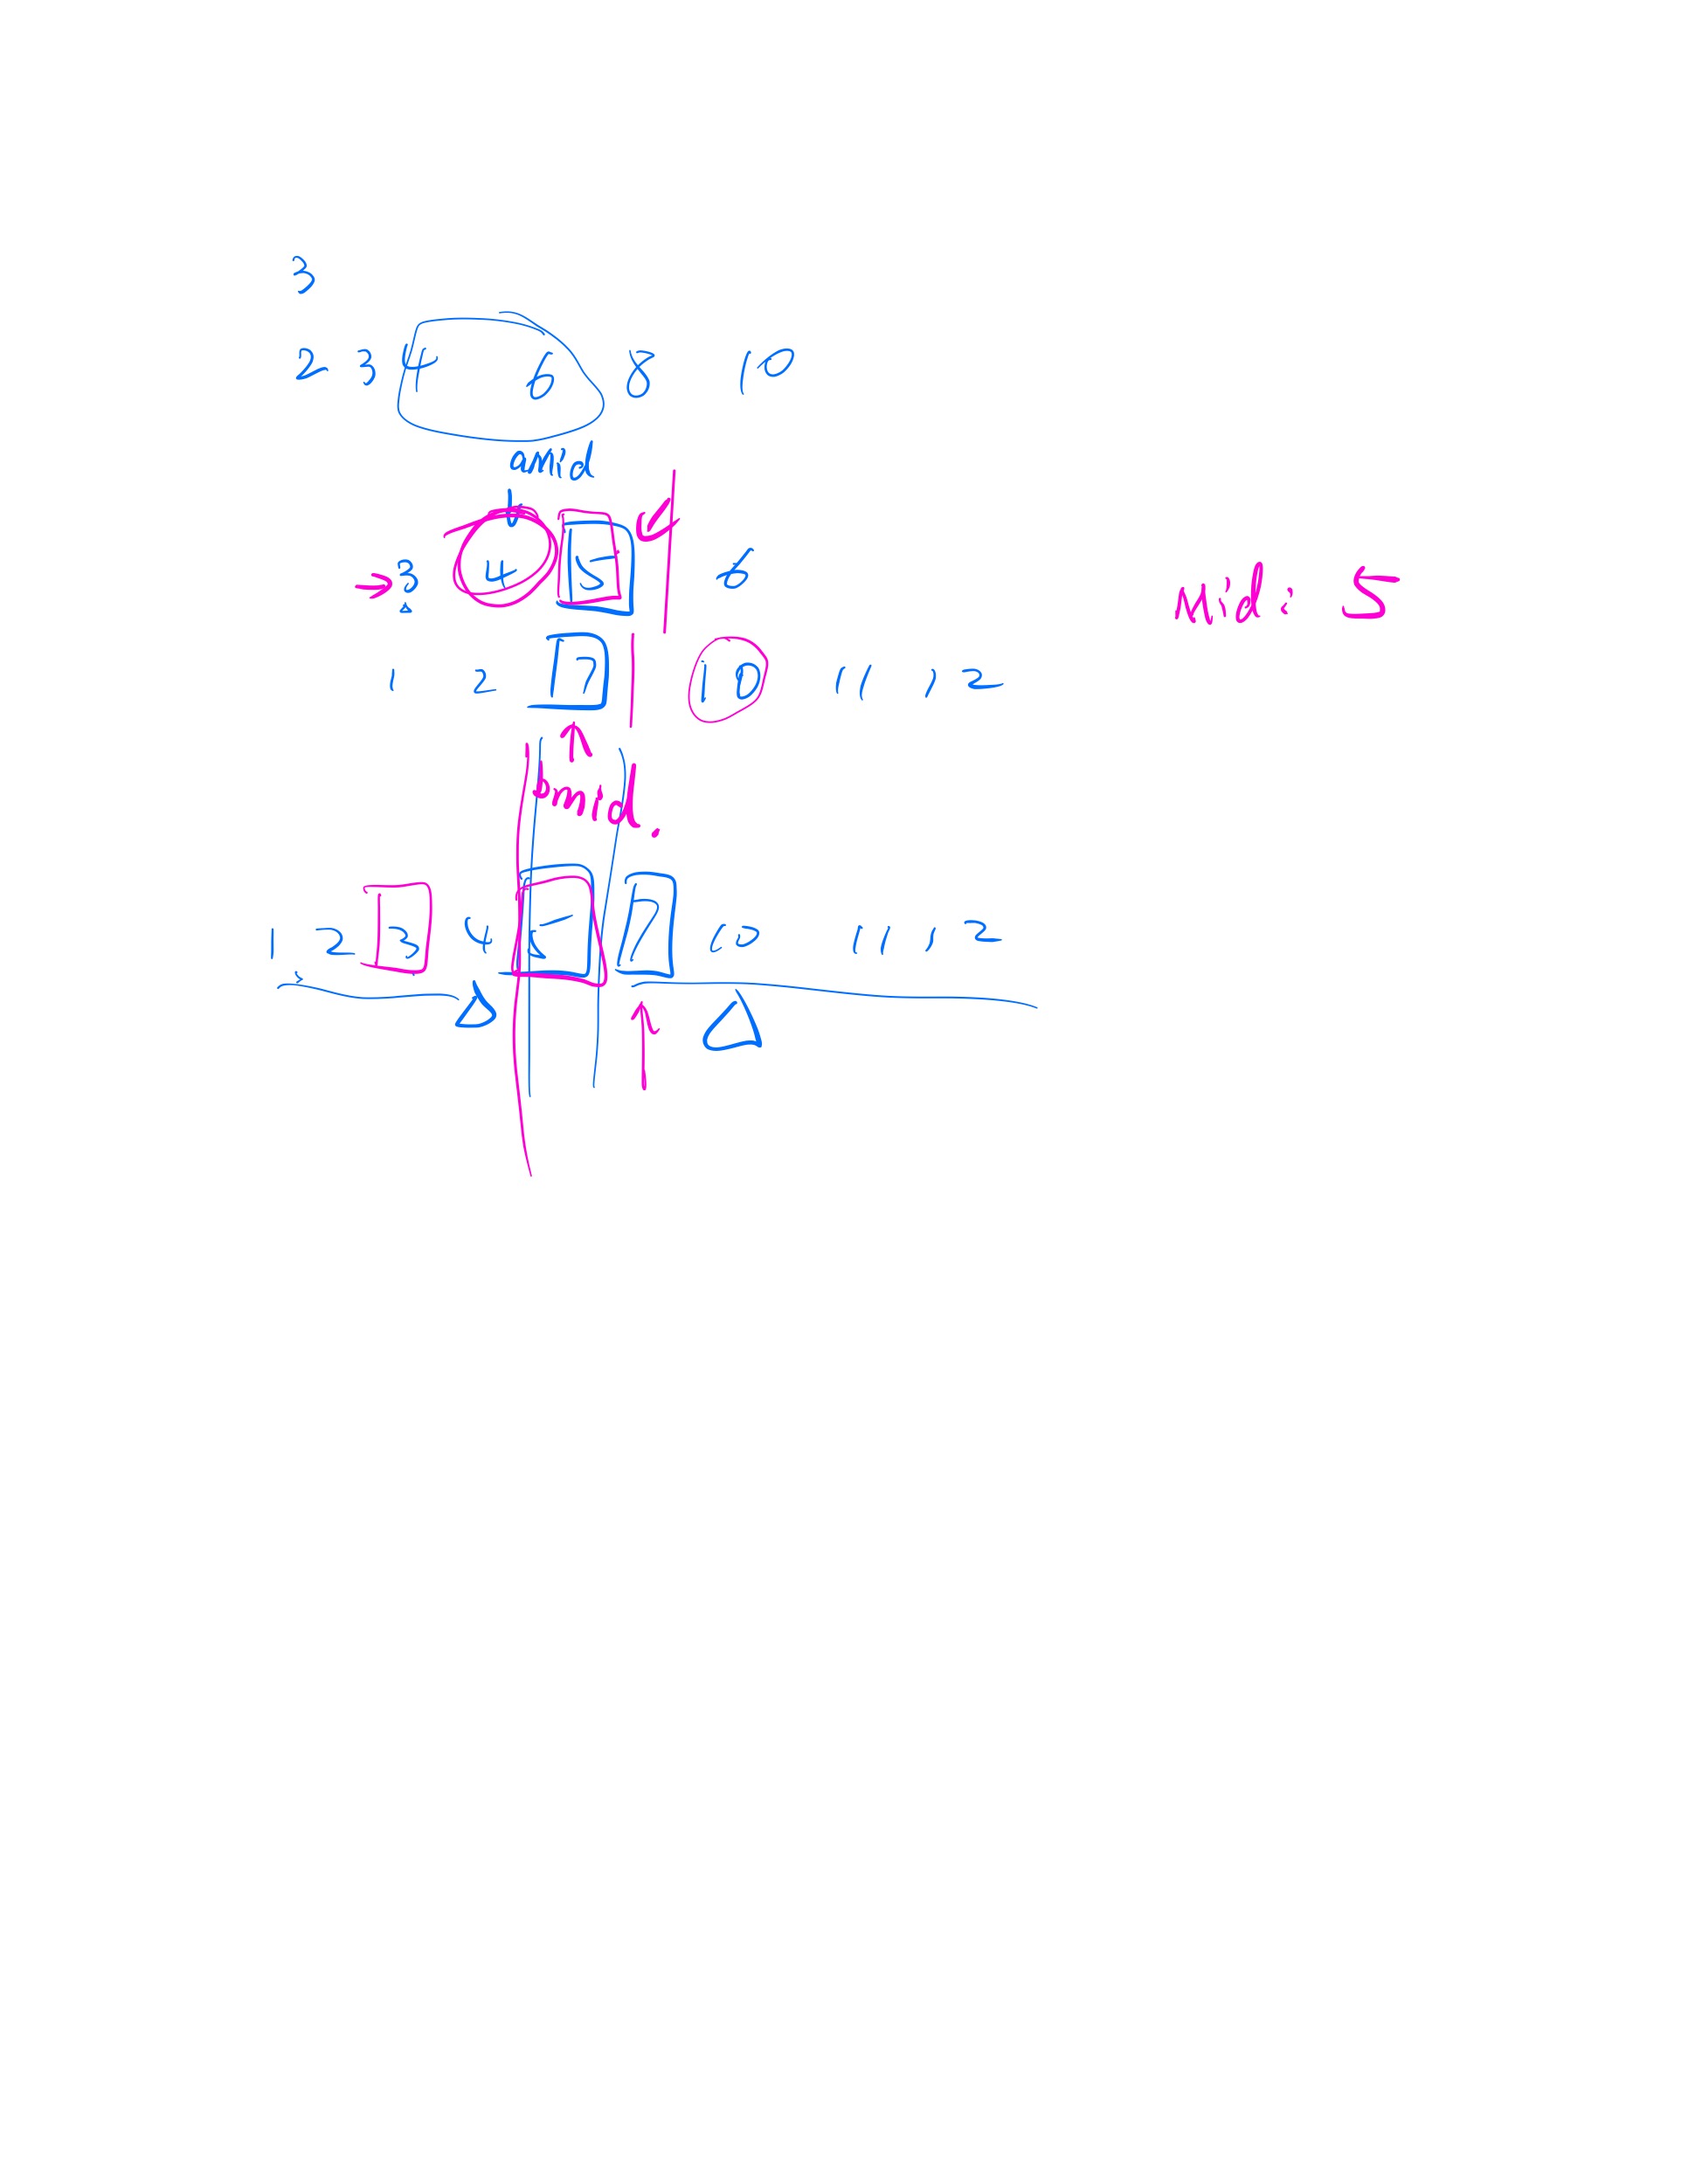 3
2 3 4 6 8 10
amid
3 4 5 6
Mid: 5
1 2 7 10 11 12
bmid.
1 2 3 4 5 7 10 11 12